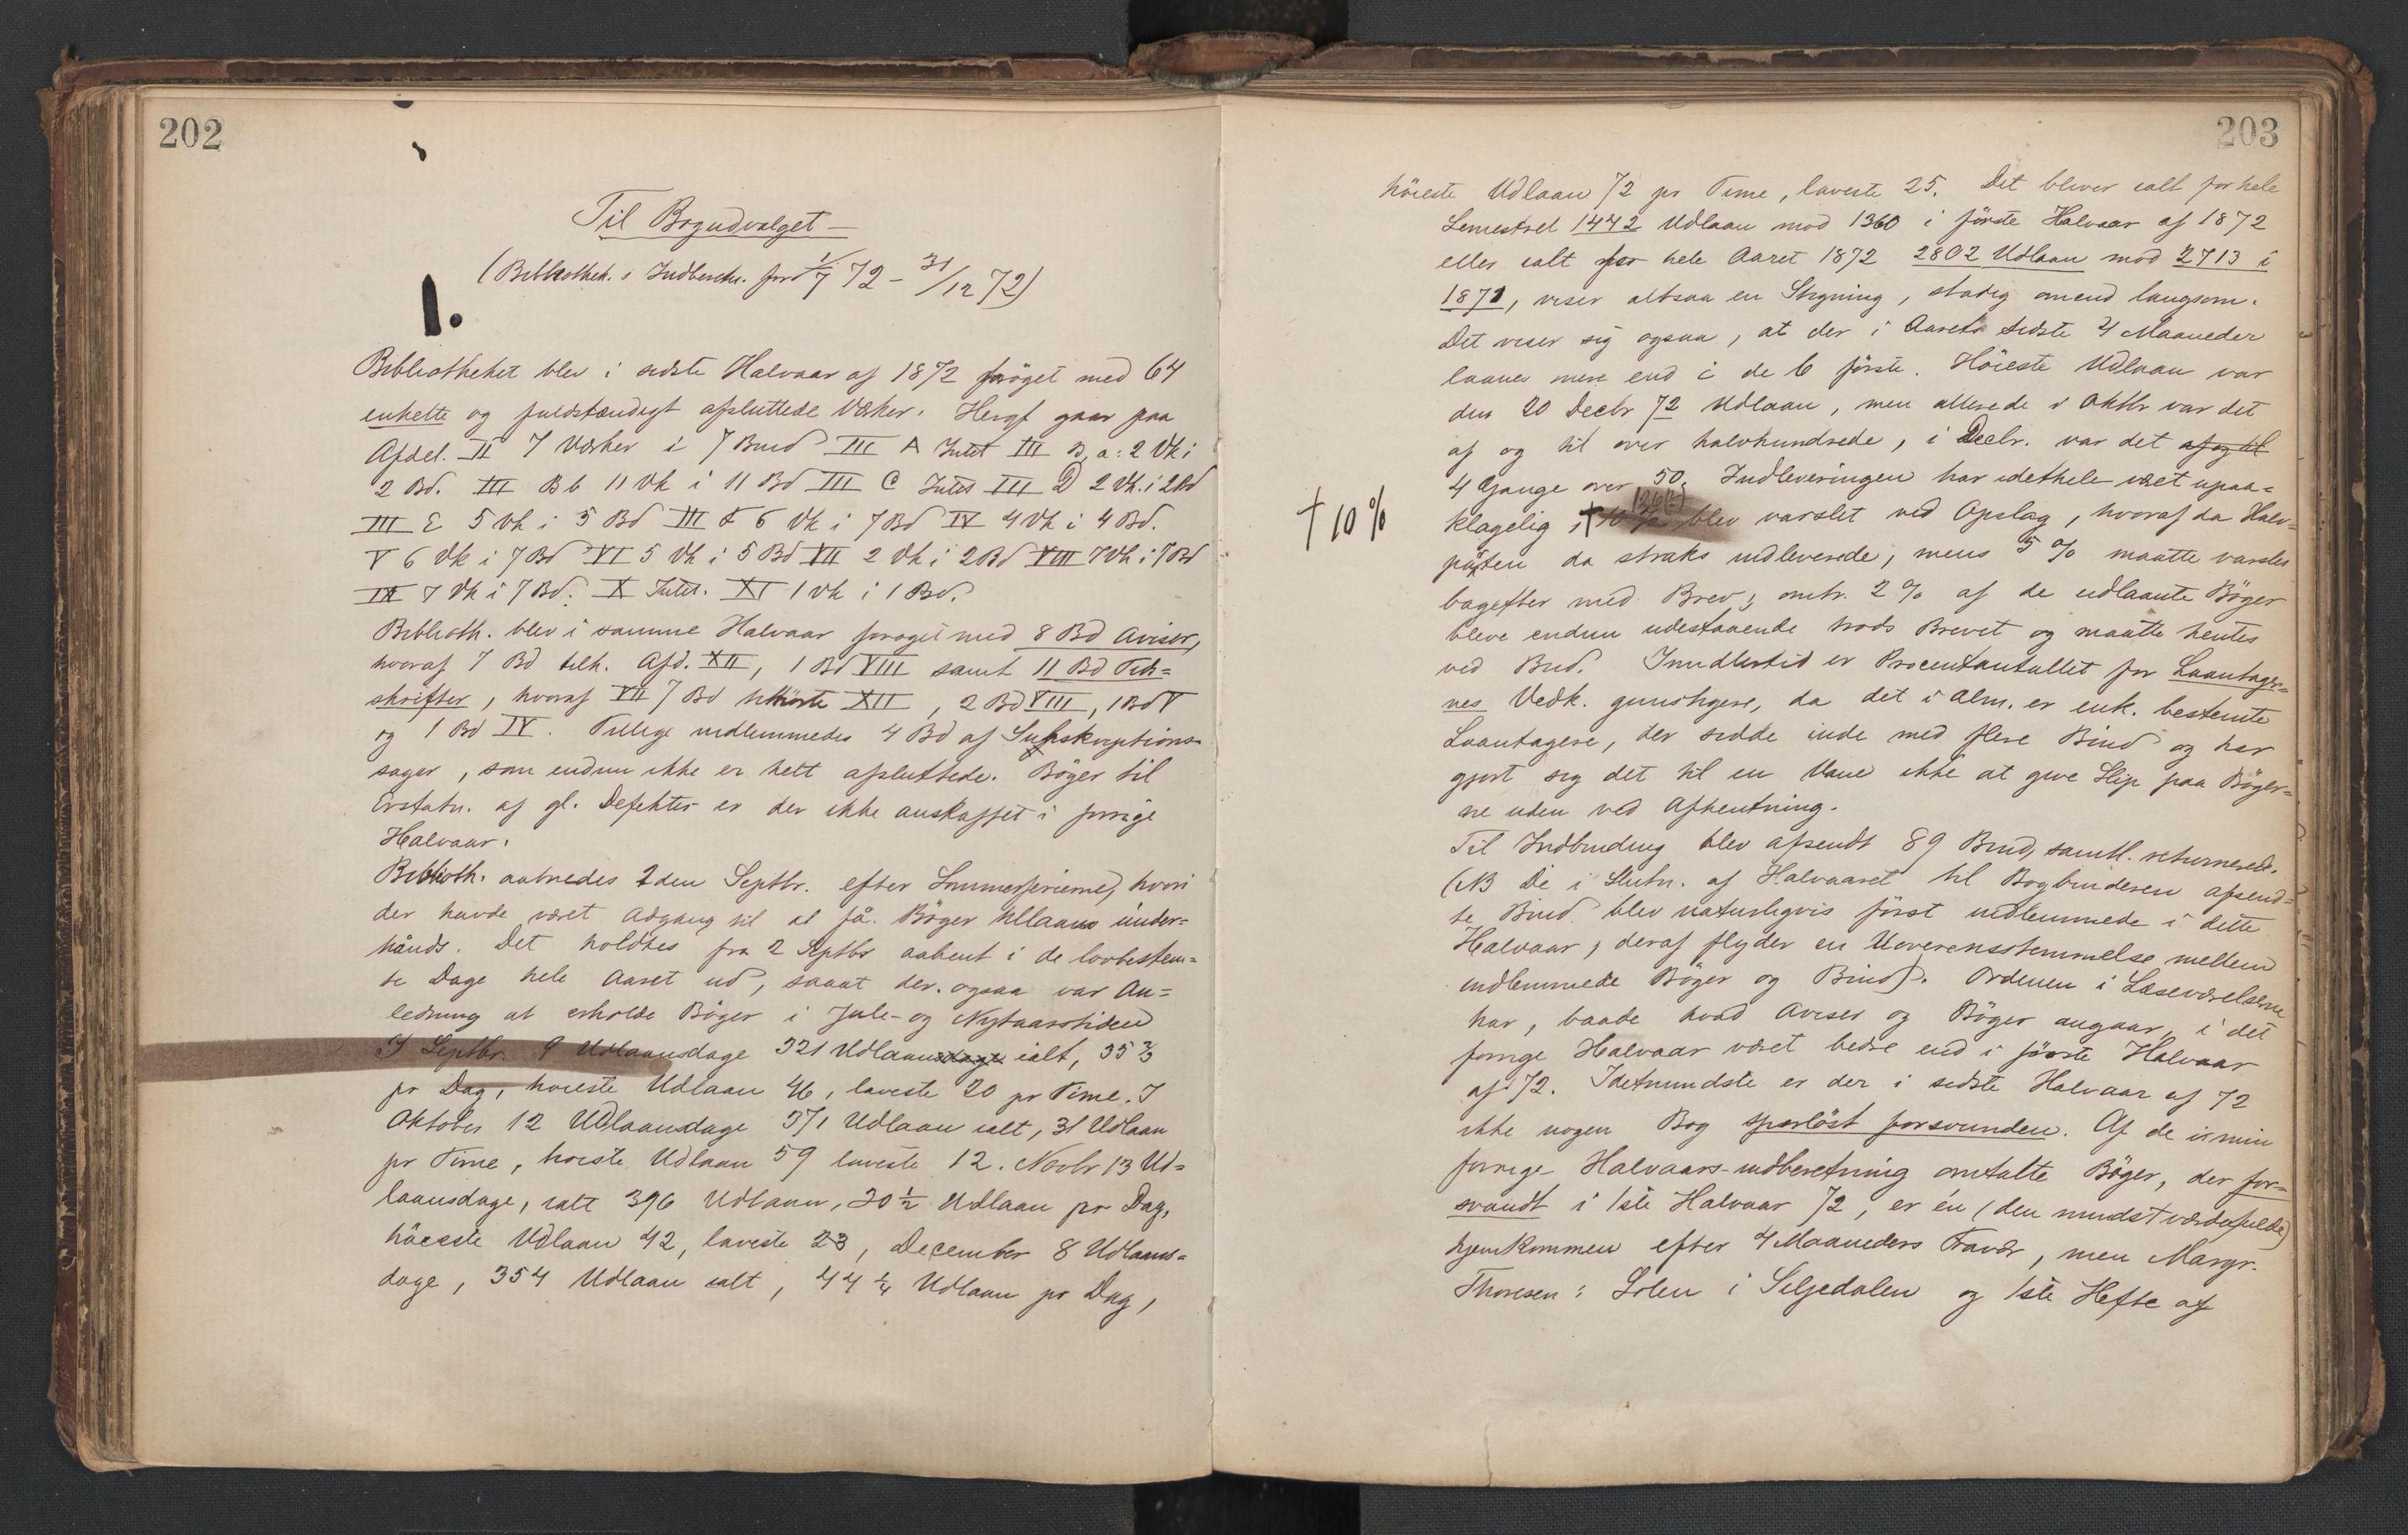 202
Til Bogudvalget —
(Bibliothek. s Indberetn. for 1/7 72 - 31/12 72)
1.
Bibliotheket blev i sidste Halvaar af 1872 forøget med 64
enkelte og fuldstændigt afsluttede Værker. Heraf gaar paa
Afdel. II 7 Værker i 7 Bind III A Intet III B, a: 2 Vk i
2 Bd. III B b 11 Vk i 11 Bd III C Intet III D 2 Vk. i 2 Bd
III E 5 Vk i 5 Bd III F 6 Vk i 7 Bd IV 4 Vk i 4 Bd.
V 6 Vk i 7 Bd VI 5 Vk i 5 Bd VII 2 Vk i 2 Bd VIII 7 Vk i 7 Bd
IX 7 Vk i 7 Bd. X Intet. XI 1 Vk i 1 Bd.
Biblioth. blev i samme Halvaar forøget med 8 Bd Aviser,
hvoraf 7 Bd tilh. Afd. XII, 1 Bd VIII samt 11 Bd Tids=
skrifter, hvoraf VII 7 Bd tilhørte XII, 2 Bd VIII, 1 Bd V
og 1 Bd IV. Tillige indlemmedes 4 Bd af Supskriptions-
sager, som endnu ikke er helt afsluttede. Bøger til
Erstatn. af gl. Defekter er der ikke anskaffet i forrige
Halvaar.
Biblioth. aabnedes 2den Septbr. efter Sommerferierne, hvori
der havde været Adgang til at få Bøger tillaans under=
hånds. Det holdtes fra 2 Septbr aabent i de lovbestem=
te Dage hele Aaret ud, saaat der ogsaa var An=
ledning at erholde Bøger i Jule- og Nytaarstiden
I Septbr. 9 Udlaansdage 321 Udlaansdage ialt, 35 2/3
pr Dag, høieste Udlaan 46, laveste 20 pr Time. I
Oktober 12 Udlaansdage 371 Udlaan ialt, 31 Udlaan
pr Time, høieste Udlaan 59 laveste 12. Novbr 13 Ud=
laansdage, ialt 396 Udlaan, 30 1/2 Udlaan pr Dag,
høieste Udlaan 42, laveste 23, December 8 Udlaans=
dage, 354 Udlaan ialt, 44 1/4 Udlaan pr Dag,
203
høieste Udlaan 72 pr Time, laveste 25. Det bliver ialt for hele
Semestret 1442 Udlaan mod 1360 i første Halvaar af 1872
eller ialt for hele Aaret 1872 2802 Udlaan mod 2713 i
1871, viser altsaa en Stigning, stadig omend langsom.
Det viser sig ogsaa, at der i Aarets sidste 4 Maaneder
laanes mere end i de 6 første. Høieste Udlaan var
den 20 Decbr 72 Udlaan, men allerede i Oktbr var det
af og til over halvhundrede, i Decbr. var det af og til
4 Gange over 50. Indleveringen har idethele været upaa=
klagelig, † 10 % blev varslet ved Opslag, hvoraf da Halv=
† 10 %
parten da straks indleverede, mens 5 % maatte varsles
bagefter med Brev; omtr. 2 % af de udlaante Bøger
bleve endnu udestaaende trods Brevet og maatte hentes
ved Bud. Imidlertid er Procentantallet for Laantager=
nes Vedk. gunstigere, da det i Alm. er enk. bestemte
Laantagere, der sidde inde med flere Bind og har
gjort sig det til en Vane ikke at give Slip paa Bøger=
ne uden ved Afhentning.
Til Indbinding blev afsendt 89 Bind, samtl. returnerede.
(NB De i Slutn. af Halvaaret til Bogbinderen afsend=
te Bind blev naturligvis først indlemmede i dette
Halvaar, deraf flyder en Uoverensstemmelse mellem
indlemmede Bøger og Bind). Ordenen i Læseværelserne
har, baade hvad Aviser og Bøger angaar, i det
forrige Halvaar været bedre end i første Halvaar
af 72. Idetmindste er der i sidste Halvaar af 72
ikke nogen Bog sporløst forsvunden. Af de i min
forrige Halvaars-indberetning omtalte Bøger, der for=
svandt i 1ste Halvaar 72, er én (den mindst værdifulde)
hjemkommen efter 4 Maaneders Fravær, men Margr.
Thoresen: Solen i Siljedalen og 1ste Hefte af